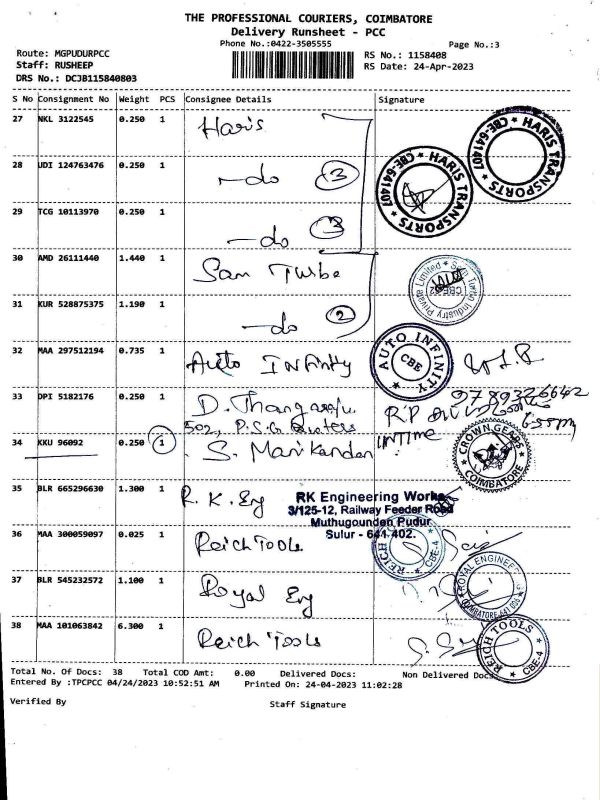 THE PROFESSIONAL COURIERS, COIMBATORE
Delivery Runsheet - PCC
Phone No.:0422-3505555
Page No.:3
Route: MGPUDURPCC
RS No.: 1158408
Staff: RUSHEEP
RS Date: 24-Apr-2023
DRS No.: DCJB115840803
S No Consignment No Weight PCS Consignee Details Signature
27 NKL 3122545 0.250 1 Haris
HARIS TRANSPORTS * CBE-641407 *
HARIS TRANSPORTS * CBE-641407 *
28 UDI 124763476 0.250 1 -do 3
29 TCG 10113970 0.250 1 -do 3
30 AMD 26111440 1.440 1 Sam Turbo
Sam Turbo Industry Private Limited
31 KUR 528875375 1.190 1 -do 2
32 MAA 297512194 0.735 1 Auto Infinity
AUTO INFINITY * CBE *
33 DPI 5182176 0.250 1 D. Thangaraju
502, P.S.G Quaters
9789326642
34 KKU 96092 0.250 1 S. Manikandan
INTIME
CROWN GEARS COIMBATORE
35 BLR 665296630 1.300 1 R. K. Eng
RK Engineering Works
3/125-12, Railway Feeder Road
Muthugounden Pudur
Sulur - 641 402.
36 MAA 300059097 0.025 1 Reich Tools
REICH TOOLS CBE-4
37 BLR 545232572 1.100 1 Royal Eng
ROYAL ENGINEERING
38 MAA 101063842 6.300 1 Reich Tools
REICH TOOLS * CBE-4 *
Total No. Of Docs: 38 Total COD Amt: 0.00 Delivered Docs: Non Delivered Docs
Entered By :TPCPCC 04/24/2023 10:52:51 AM Printed On: 24-04-2023 11:02:28
Verified By Staff Signature